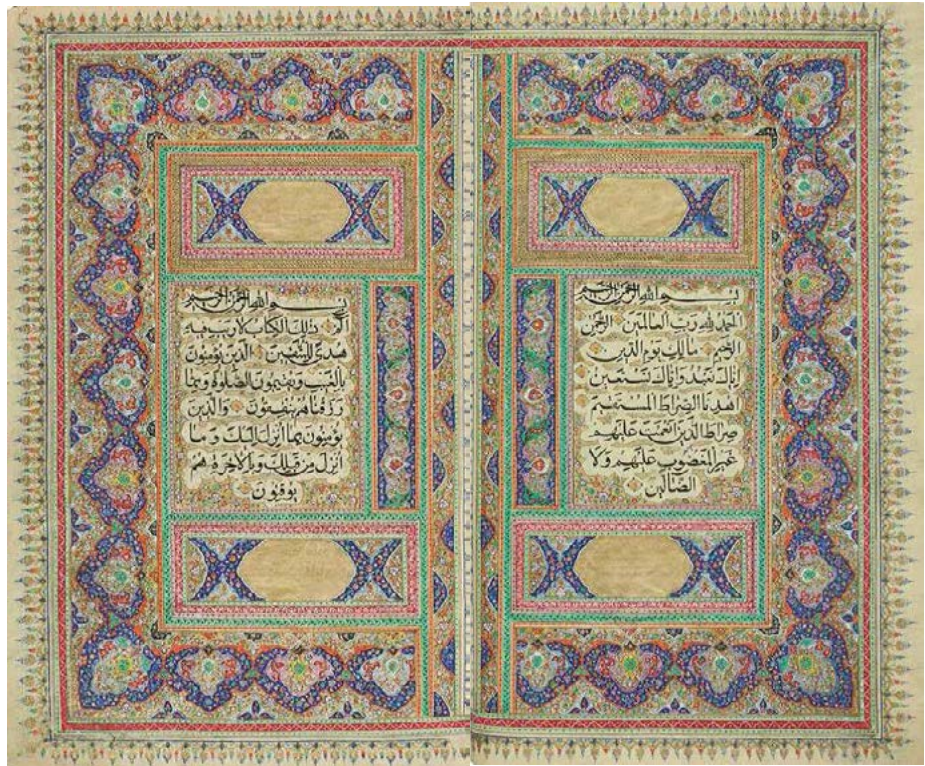 بسم الله الرحمن الرحيم
الحمد لله رب العالمين الرحمن
الرحيم مالك يوم الدين
إياك نعبد وإياك نستعين
اهدنا الصراط المستقيم
صراط الذين أنعمت عليهم
غير المغضوب عليهم ولا
الضالين
بسم الله الرحمن الرحيم
الم ذلك الكتاب لا ريب فيه
هدى للمتقين الذين يؤمنون
بالغيب ويقيمون الصلوة ومما
رزقناهم ينفقون والذين
يؤمنون بما أنزل إليك وما
أنزل من قبلك وبالآخرة هم
يوقنون